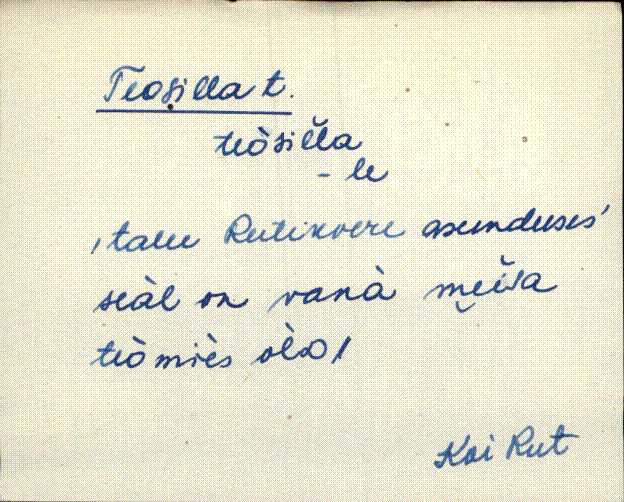 Teosilla t.
teòsilla
- le
'talu Rutikvere asunduses'
seàl on vanà mẹiša
teòmiès òlo/
Koi Rut